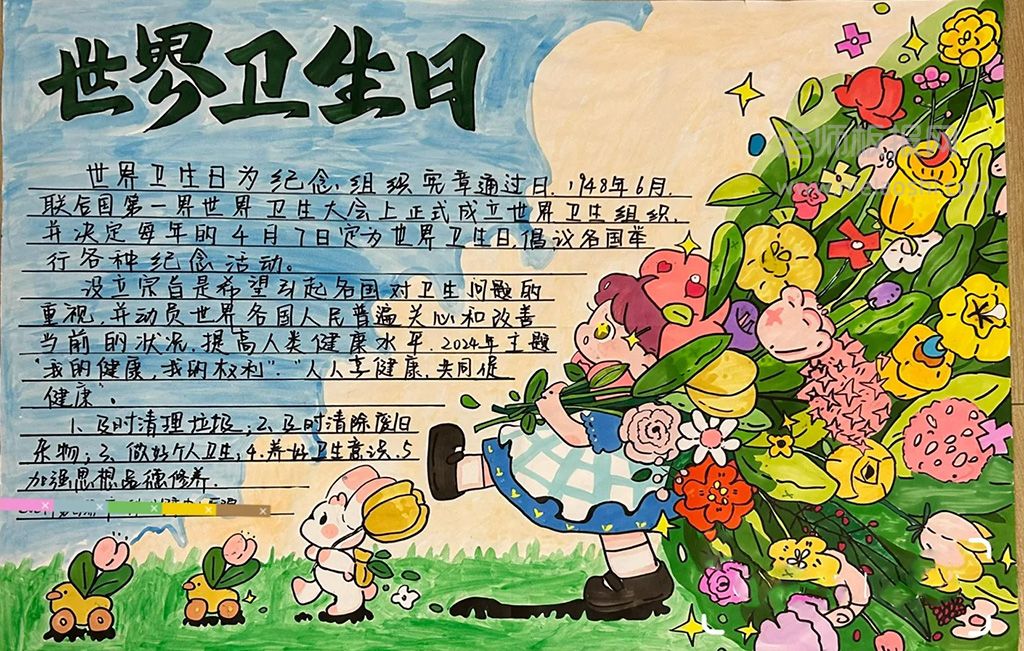 世界卫生日
世界卫生日为纪念,组织宪章通过日.1948年6月.
联合国第一界世界卫生大会上正式成立世界卫生组织.
并决定每年的4月7日定为世界卫生日,倡议各国举
行各种纪念活动。
设立宗旨是希望引起各国对卫生问题的
重视,并动员世界各国人民普遍关心和改善
当前的状况,提高人类健康水平.2024年主题
"我的健康,我的权利"."人人享健康,共同促
健康"。
1.及时清理垃圾;2.及时清除废旧
杂物;3.做好个人卫生;4.养好卫生意识.5
加强思想品德修养.
老师板报网